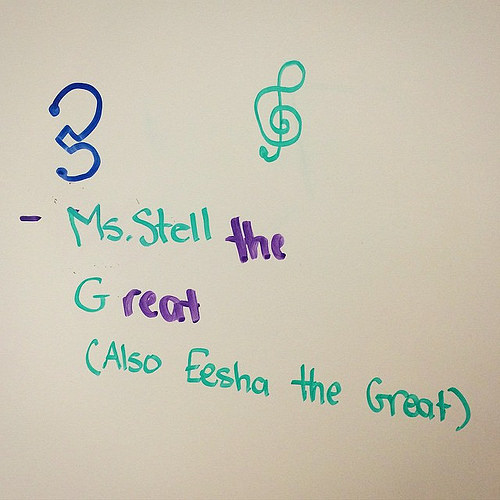 3
- Ms. Stell the
Great
(Also Eesha the Great)